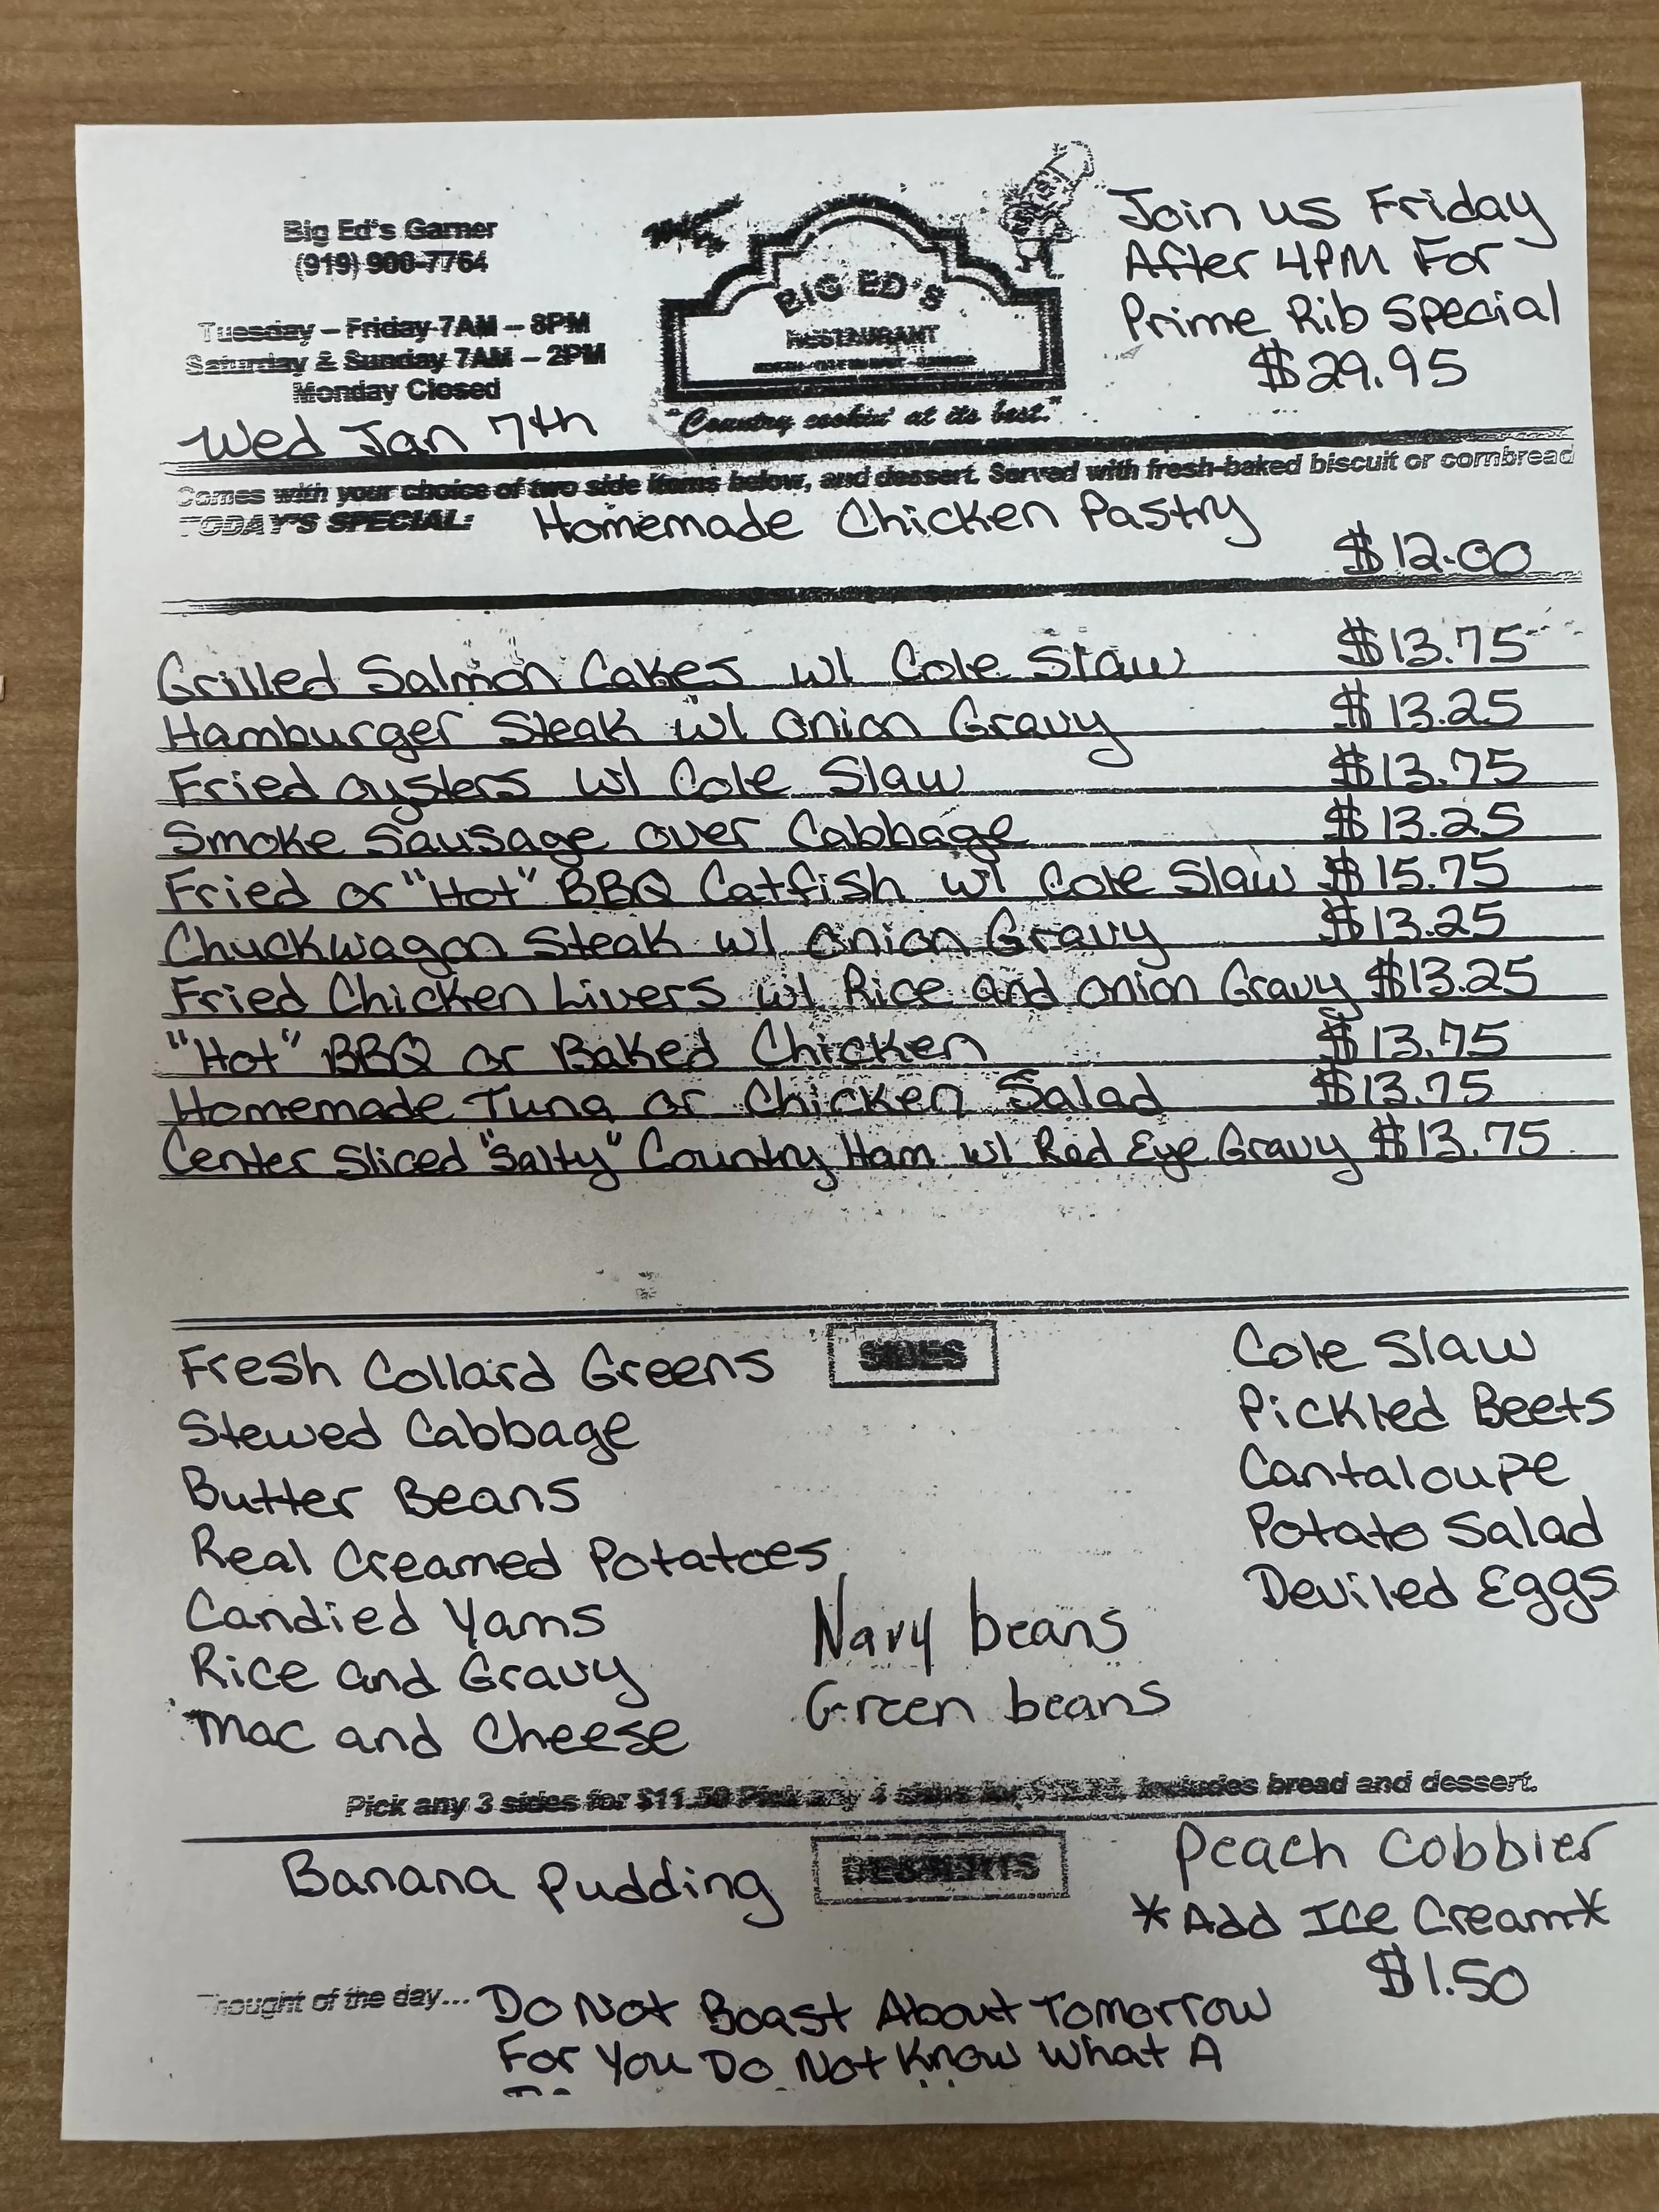 Big Ed's Garner
(919) 900-7764
Tuesday – Friday 7AM – 8PM
Saturday & Sunday 7AM – 2PM
Monday Closed
Wed Jan 7th
BIG ED'S
RESTAURANT
"Country cookin' at its best."
Join us Friday
After 4PM For
Prime Rib Special
$29.95
Comes with your choice of two side items below, and dessert. Served with fresh-baked biscuit or cornbread
TODAY'S SPECIAL: Homemade Chicken Pastry
$12.00
Grilled Salmon Cakes w/ Cole Slaw $13.75
Hamburger Steak w/ Onion Gravy $13.25
Fried Oysters w/ Cole Slaw $13.75
Smoke Sausage over Cabbage $13.25
Fried or "Hot" BBQ Catfish w/ Cole Slaw $15.75
Chuckwagon Steak w/ Onion Gravy $13.25
Fried Chicken Livers w/ Rice and Onion Gravy $13.25
"Hot" BBQ or Baked Chicken $13.75
Homemade Tuna or Chicken Salad $13.75
Center Sliced "Salty" Country Ham w/ Red Eye Gravy $13.75
SIDES
Fresh Collard Greens
Stewed Cabbage
Butter Beans
Real Creamed Potatoes
Candied Yams
Rice and Gravy
Mac and Cheese
Navy beans
Green beans
Cole Slaw
Pickled Beets
Cantaloupe
Potato Salad
Deviled Eggs
Pick any 3 sides for $11.50 Pick any 4 sides for includes bread and dessert.
DESSERTS
Banana Pudding
Peach Cobbler
*Add Ice Cream*
$1.50
Thought of the day... Do Not Boast About Tomorrow
For You Do Not Know What A